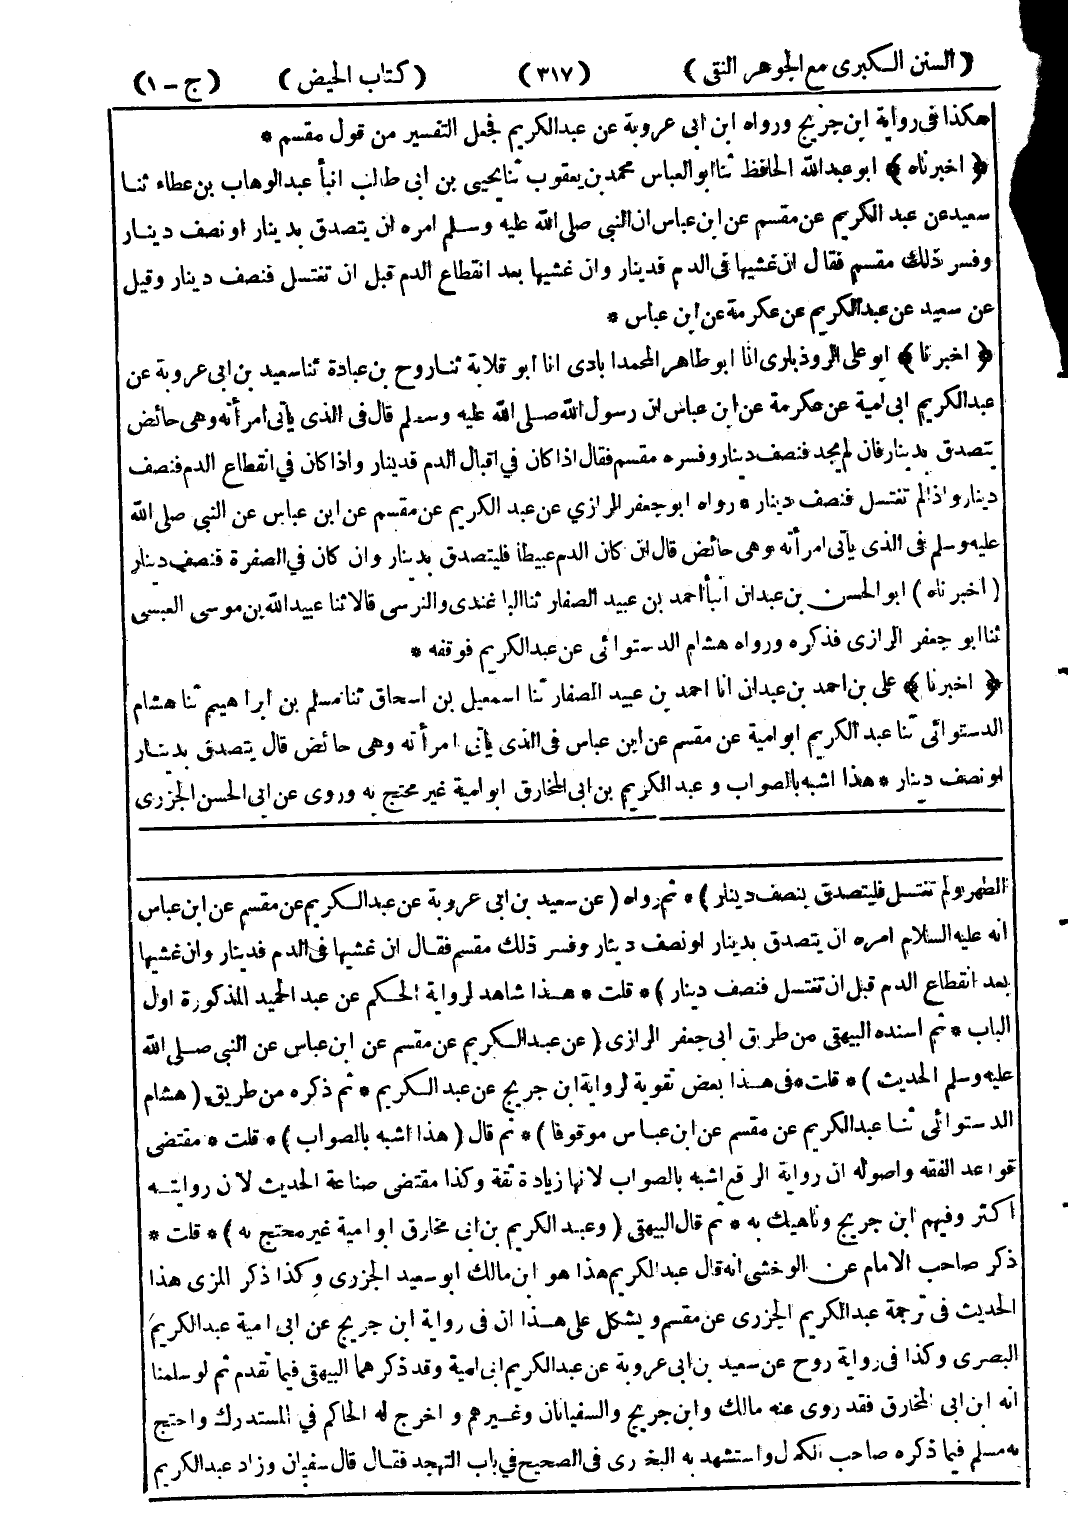 (السنن الكبرى مع الجوهر النقى) (٣١٧) (كتاب الحيض) (ج - ١)
هكذا فى رواية ابن جريج ورواه ابن ابى عروبة عن عبدالكريم فجعل التفسير من قول مقسم *
﴿ اخبرناه ﴾ ابوعبدالله الحافظ ثنا ابوالعباس محمد بن يعقوب ثنا يحيى بن ابى طالب انبأ عبدالوهاب بن عطاء ثنا
سعيد عن عبد الكريم عن مقسم عن ابن عباس ان النبى صلى الله عليه وسلم امره ان يتصدق بدينار او نصف دينار
وفسر ذلك مقسم فقال ان غشيها فى الدم فدينار وان غشيها بعد انقطاع الدم قبل ان تغتسل فنصف دينار وقيل
عن سعيد عن عبدالكريم عن عكرمة عن ابن عباس *
﴿ اخبرنا ﴾ ابو على الروذبارى انا ابو طاهر المحمدابادى انا ابو قلابة ثنا روح بن عبادة ثنا سعيد بن ابى عروبة عن
عبدالكريم ابى امية عن عكرمة عن ابن عباس ان رسول الله صلى الله عليه وسلم قال فى الذى يأتى امرأته وهى حائض
يتصدق بدينار فان لم يجد فنصف دينار وفسره مقسم فقال اذا كان في اقبال الدم فدينار واذا كان في انقطاع الدم فنصف
دينار واذا لم تغتسل فنصف دينار * رواه ابو جعفر الرازي عن عبد الكريم عن مقسم عن ابن عباس عن النبي صلى الله
عليه وسلم فى الذى يأتى امرأته وهى حائض قال ان كان الدم عبيطا فليتصدق بدينار وان كان في الصفرة فنصف دينار
(اخبرناه) ابو الحسن بن عبدان انبأ احمد بن عبيد الصفار ثنا الباغندى والنرسى قالا ثنا عبيدالله بن موسى العبسى
ثنا ابو جعفر الرازى فذكره ورواه هشام الدستوائى عن عبدالكريم فوقفه *
﴿ اخبرنا ﴾ على بن احمد بن عبدان انا احمد بن عبيد الصفار ثنا اسمعيل بن اسحاق ثنا مسلم بن ابراهيم ثنا هشام
الدستوائى ثنا عبد الكريم ابو امية عن مقسم عن ابن عباس فى الذى يأتى امرأته وهى حائض قال يتصدق بدينار
او نصف دينار * هذا اشبه بالصواب و عبدالكريم بن ابى المخارق ابو امية غير محتج به وروى عن ابى الحسن الجزرى
الطهر ولم تغتسل فليتصدق بنصف دينار) * ثم رواه (عن سعيد بن ابى عروبة عن عبدالكريم عن مقسم عن ابن عباس
انه عليه السلام امره ان يتصدق بدينار او نصف دينار وفسر ذلك مقسم فقال ان غشيها فى الدم فدينار وان غشيها
بعد انقطاع الدم قبل ان تغتسل فنصف دينار) * قلت * هذا شاهد لرواية الحكم عن عبد الحميد المذكورة اول
الباب * ثم اسنده البيهقى من طريق ابى جعفر الرازى (عن عبدالكريم عن مقسم عن ابن عباس عن النبى صلى الله
عليه وسلم الحديث) * قلت * فى هذا بعض تقوية لرواية ابن جريج عن عبد الكريم * ثم ذكره من طريق (هشام
الدستوائى ثنا عبدالكريم عن مقسم عن ابن عباس موقوفا) * ثم قال (هذا اشبه بالصواب) * قلت * مقتضى
قواعد الفقه واصوله ان رواية الرفع اشبه بالصواب لانها زيادة ثقة وكذا مقتضى صناعة الحديث لان رواته
اكثر وفيهم ابن جريج وناهيك به * ثم قال البيهقى (وعبد الكريم بن ابى مخارق ابو امية غير محتج به) * قلت *
ذكر صاحب الامام عن الوخشى انه قال عبدالكريم هذا هو ابن مالك ابو سعيد الجزرى وكذا ذكر المزى هذا
الحديث فى ترجمة عبدالكريم الجزرى عن مقسم ويشكل على هذا ان فى رواية ابن جريج عن ابى امية عبدالكريم
البصرى وكذا فى رواية روح عن سعيد بن ابى عروبة عن عبدالكريم ابى امية وقد ذكرهما البيهقى فيما تقدم ثم لو سلمنا
انه ابن ابى المخارق فقد روى عنه مالك وابن جريج والسفيانان وغيرهم و اخرج له الحاكم في المستدرك واحتج
به مسلم فيما ذكره صاحب الكمال واستشهد به البخارى فى الصحيح في باب التهجد فقال قال سفيان وزاد عبدالكريم